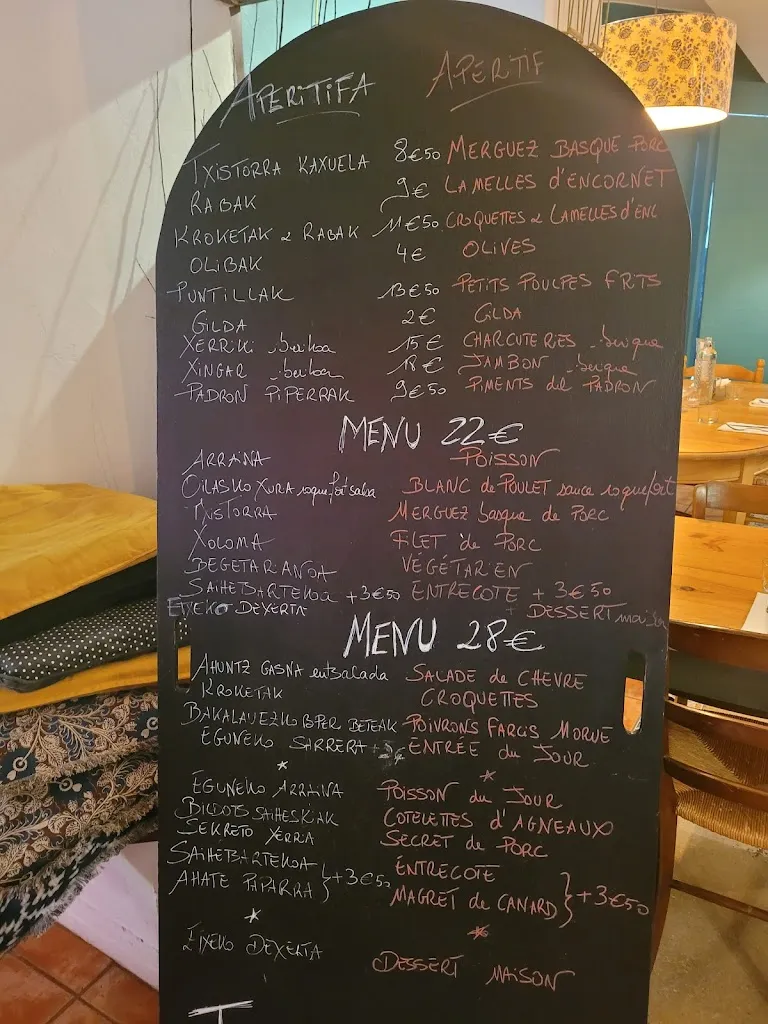 APERITIFA APERITIF
TXISTORRA KAXUELA 8€50 MERGUEZ BASQUE PORC
RABAK 9€ LAMELLES D'ENCORNET
KROKETAK & RABAK 11€50 CROQUETTES & LAMELLES D'ENC
OLIBAK 4€ OLIVES
PUNTILLAK 13€50 PETITS POULPES FRITS
GILDA 2€ GILDA
XERRIKI iberikoa 15€ CHARCUTERIES iberique
XINGAR iberikoa 18€ JAMBON iberique
PADRON PIPERRAK 9€50 PIMENTS del PADRON
MENU 22€
ARRAINA POISSON
OILASKO XURA roquefort salsa BLANC de POULET sauce roquefort
TXISTORRA MERGUEZ basque de PORC
XOLOMA FILET de PORC
BEGETARIANOA VÉGÉTARIEN
SAIHETSBARTEKOA +3€50 ENTRECOTE + 3€50
ETXEKO DEXERTA + DESSERT maison
MENU 28€
AHUNTZ GASNA entsalada SALADE de CHEVRE
KROKETAK CROQUETTES
BAKALAUEZKO BIPER BETEAK POIVRONS FARCIS MORUE
EGUNEKO SARRERA ENTRÉE du JOUR
EGUNEKO ARRAINA POISSON du JOUR
BILDOTS SAIHESKIAK COTELETTES d'AGNEAUX
SEKRETO XERRA SECRET de PORC
SAIHETSBARTEKOA ENTRECOTE
AHATE PAPARRA } +3€50 MAGRET de CANARD } +3€50
ETXEKO DEXERTA DESSERT MAISON